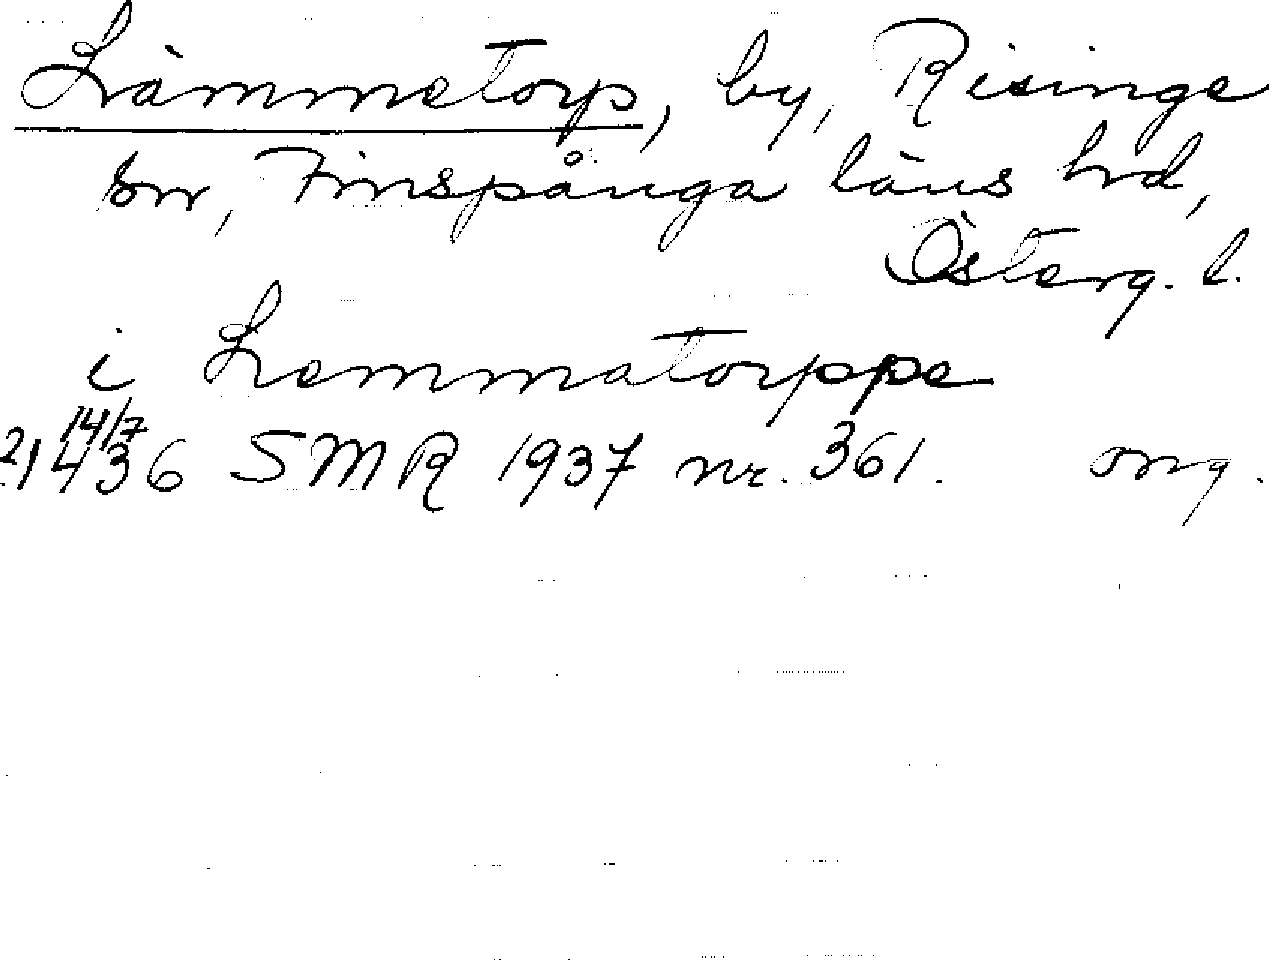 Lämmetorp, by, Risinge
sn, Finspånga läns hrd,
Österg. l.
i Lemmatorppe
14/7
1436 SMR 1937 nr. 361. org.